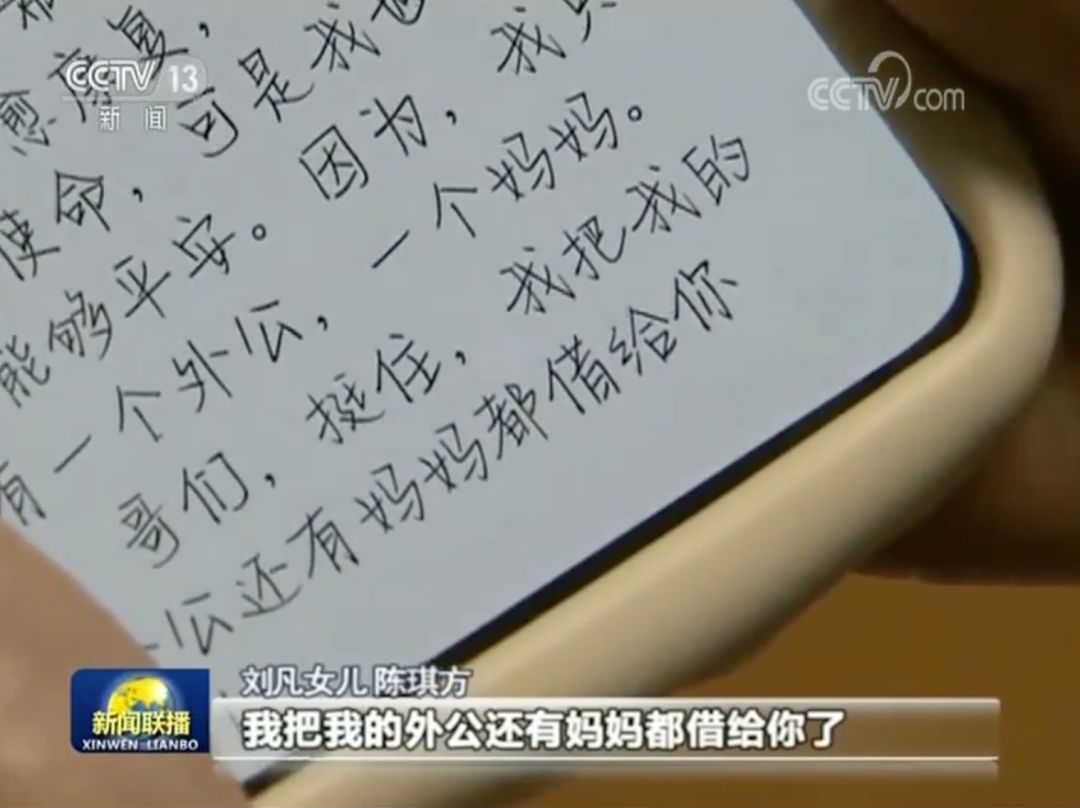 CCTV 13
新闻
CCTV.com
愈 复，
使命，可是我也
能够平安。因为，我只
有一个外公，一个妈妈。
哥们，挺住，我把我的
公还有妈妈都借给你
刘凡女儿 陈琪方
新闻联播
XINWEN LIANBO
我把我的外公还有妈妈都借给你了